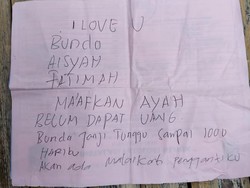 I LOVE U
Bunda
AISYAH
FATIMAH
MAAFKAN AYAH
BELUM DAPAT UANG
Bunda Janji Tunggu Sampai 1000
HARIBU
Akan ada Malaikat penggantiku